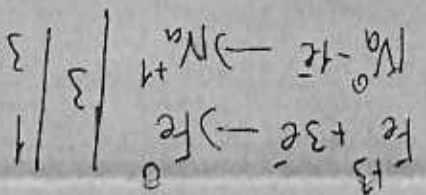 Fe⁺³ +3ē → Fe⁰ | 3 | 1
Na⁰ -1ē → Na⁺¹ | | 3